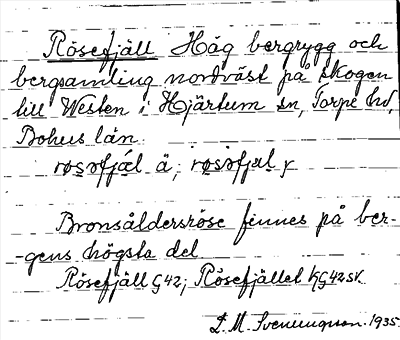 Rösefjäll Hög bergrygg och
bergsamling nordväst på skogen
till Westen i Hjärtum sn, Torpe hd,
Bohus län.
røsəfjæl ä; røsəfjæl y
Bronsåldersröse finnes på ber-
gens högsta del
Rösefjäll G42; Rösefjället KG42SV.
D. M. Svenungsson. 1935.